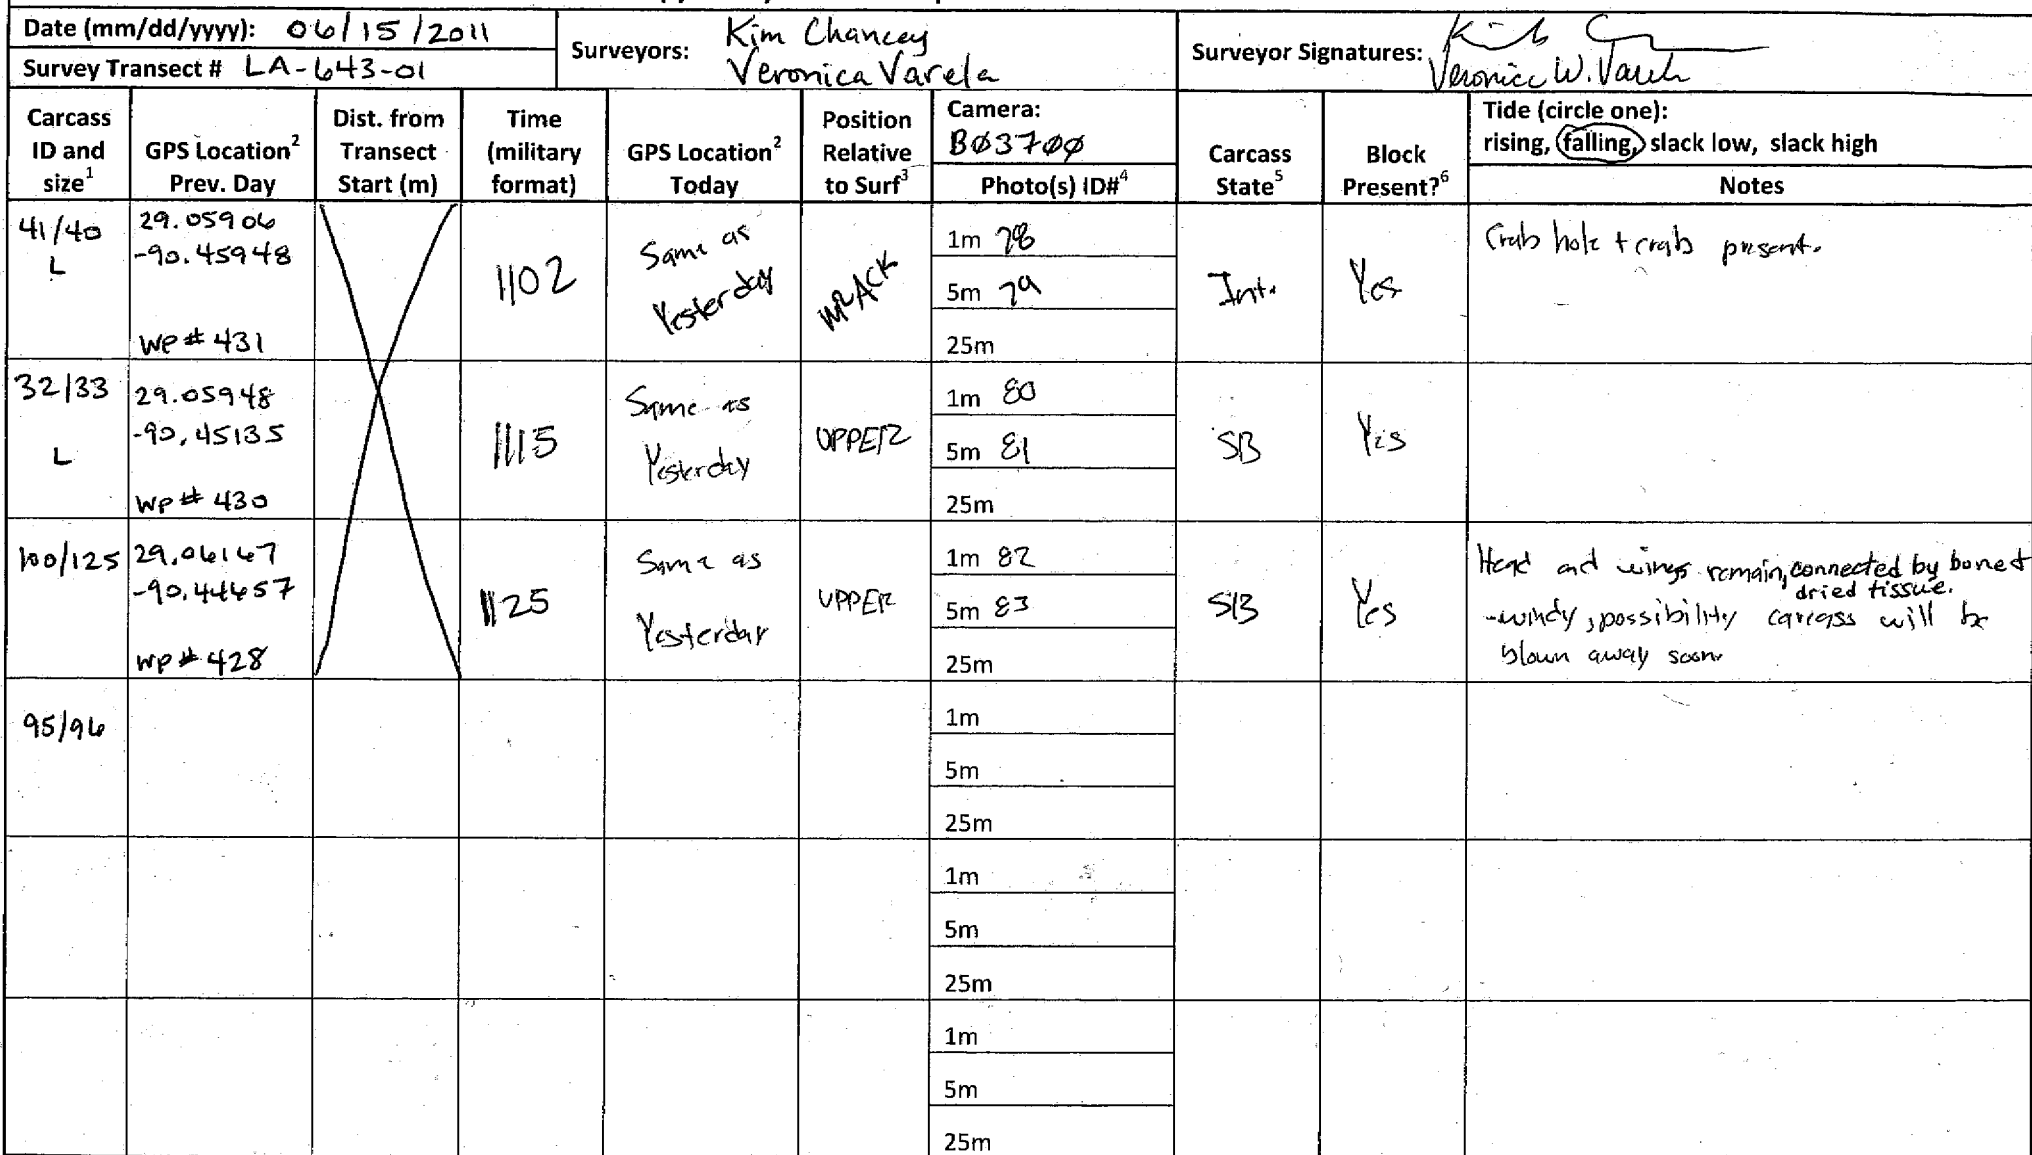 Date (mm/dd/yyyy): 06/15/2011
Survey Transect # LA-643-01
Surveyors: Kim Chancey
Veronica Varela
Surveyor Signatures:
Veronica W. Varela
Carcass ID and size1
GPS Location2 Prev. Day
Dist. from Transect Start (m)
Time (military format)
GPS Location2 Today
Position Relative to Surf3
Camera: BØ37ØØ
Photo(s) ID#4
Carcass State5
Block Present?6
Tide (circle one):
rising, falling, slack low, slack high
Notes
41/40
L
29.05906
-90.45948
WP# 431
1102
Same as
Yesterday
WRACK
1m 78
5m 79
25m
Int.
Yes
Crab hole + crab present.
32/33
L
29.05948
-90.45135
WP# 430
1115
Same as
Yesterday
UPPER
1m 80
5m 81
25m
SB
Yes
100/125
29.06167
-90.44657
WP# 428
1125
Same as
Yesterday
UPPER
1m 82
5m 83
25m
SB
Yes
Head and wings remain, connected by bone +
dried tissue.
-windy, possibility carcass will be
blown away soon.
95/96
1m
5m
25m
1m
5m
25m
1m
5m
25m